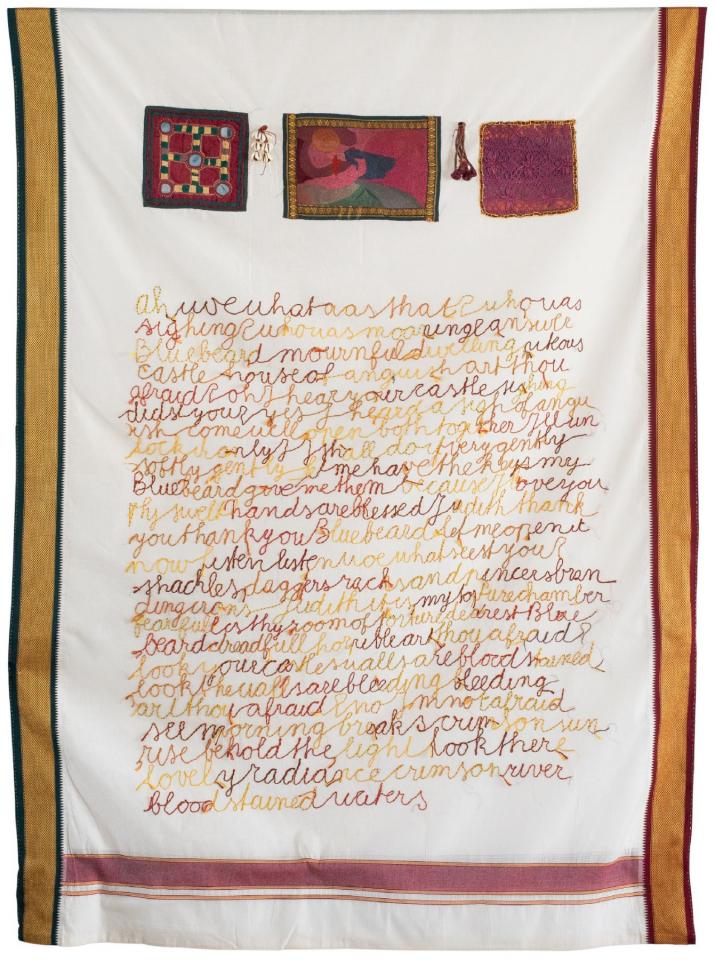 ahwoewhatwasthat?whowas
sighing?whowasmoaninganswer
Bluebeardmournfuldwelling
castlehouseofanguishartthou
afraid?ohIhearyourcastlesighing
didstyou?yesIheardasighofangu
ishcomewellopenbothtogetherIllun
only?Ishalldoitverygently
softlygently mehavethekeysmy
BluebeardgavemethembecauseIloveyou
handsareblessedJudiththank
youthankyouBluebeardletmeopenit
nowlistenlistenwoewhatseestyou?
shacklesdaggersracksandpincersbran
dingironsJudiththisismytorturechamber
fearfullisthyroomoftorturedearestBlue
bearddreadfullhorribleartthouafraid?
lookyourcastleswallsarebloodstained
lookthewallsarebleedingbleeding
artthouafraid?noImnotafraid
seemorningbreakscrimsonsun
risebeholdthelightlookthere
lovelyradiancecrimsonriver
bloodstainedwaters